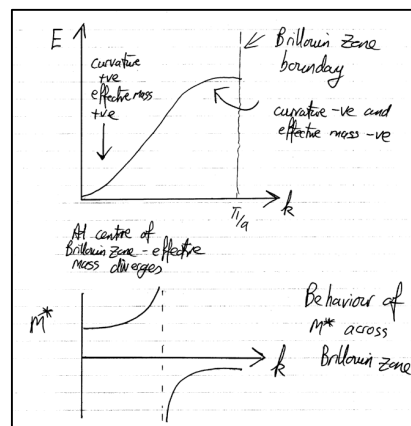 E
Brillouin Zone
boundary
curvature
+ve
effective mass
+ve
curvature -ve and
effective mass -ve
π/a
k
At centre of
Brillouin Zone - effective
mass diverges
M*
k
Behaviour of
M* across
Brillouin Zone